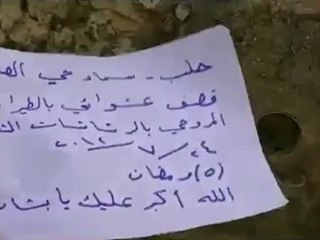 حلب - مساء حي الص
قصف عشوائي بالطيرا
المروحي بالرشاشات الث
٢٤/٧/٢٠١٢
(٥) رمضان
الله أكبر عليك يا بشا